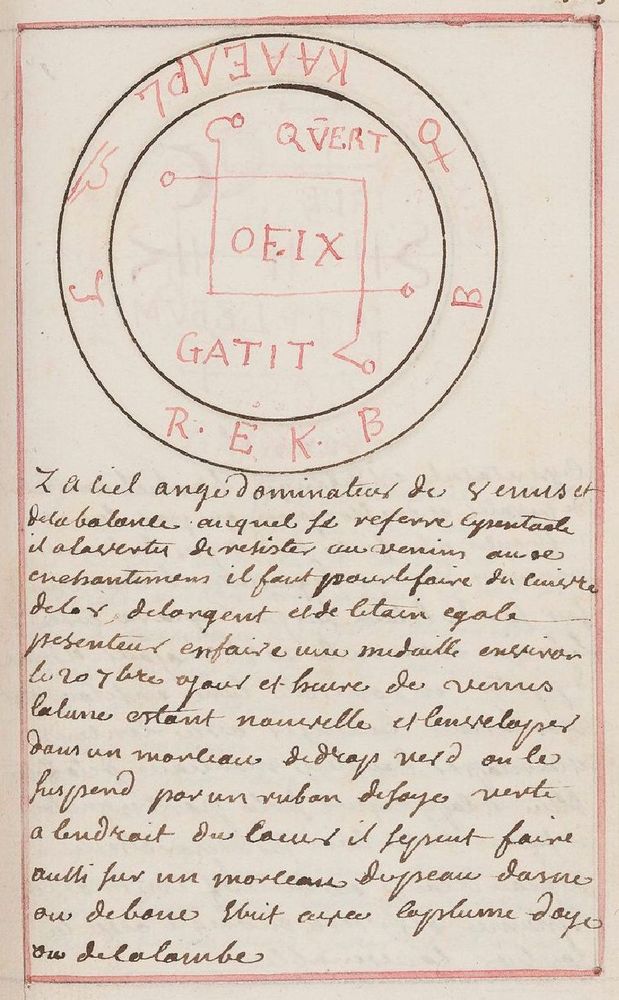 KAAEAPL
♀
B
B
R. E K.
QVERT
OEIX
GATIT
Zaciel ange dominateur de venus et
dela balance auquel se referre le pentacle
il a la vertu de resister au venins au ce
enchantemens il faut pour le faire du cuivre
delor, delargent et de letain egale
pesenteur enfaire une medaille environ
le 20 7bre a jour et heure de venus
la lune estant nouvelle et lenveloper
dans un morceau de drap verd on le
suspend par un ruban de soye verte
a lendroit du coeur il se peut faire
aussi sur un morceau de peau dasne
ou de bouc avec la plume doye
ou de colombe